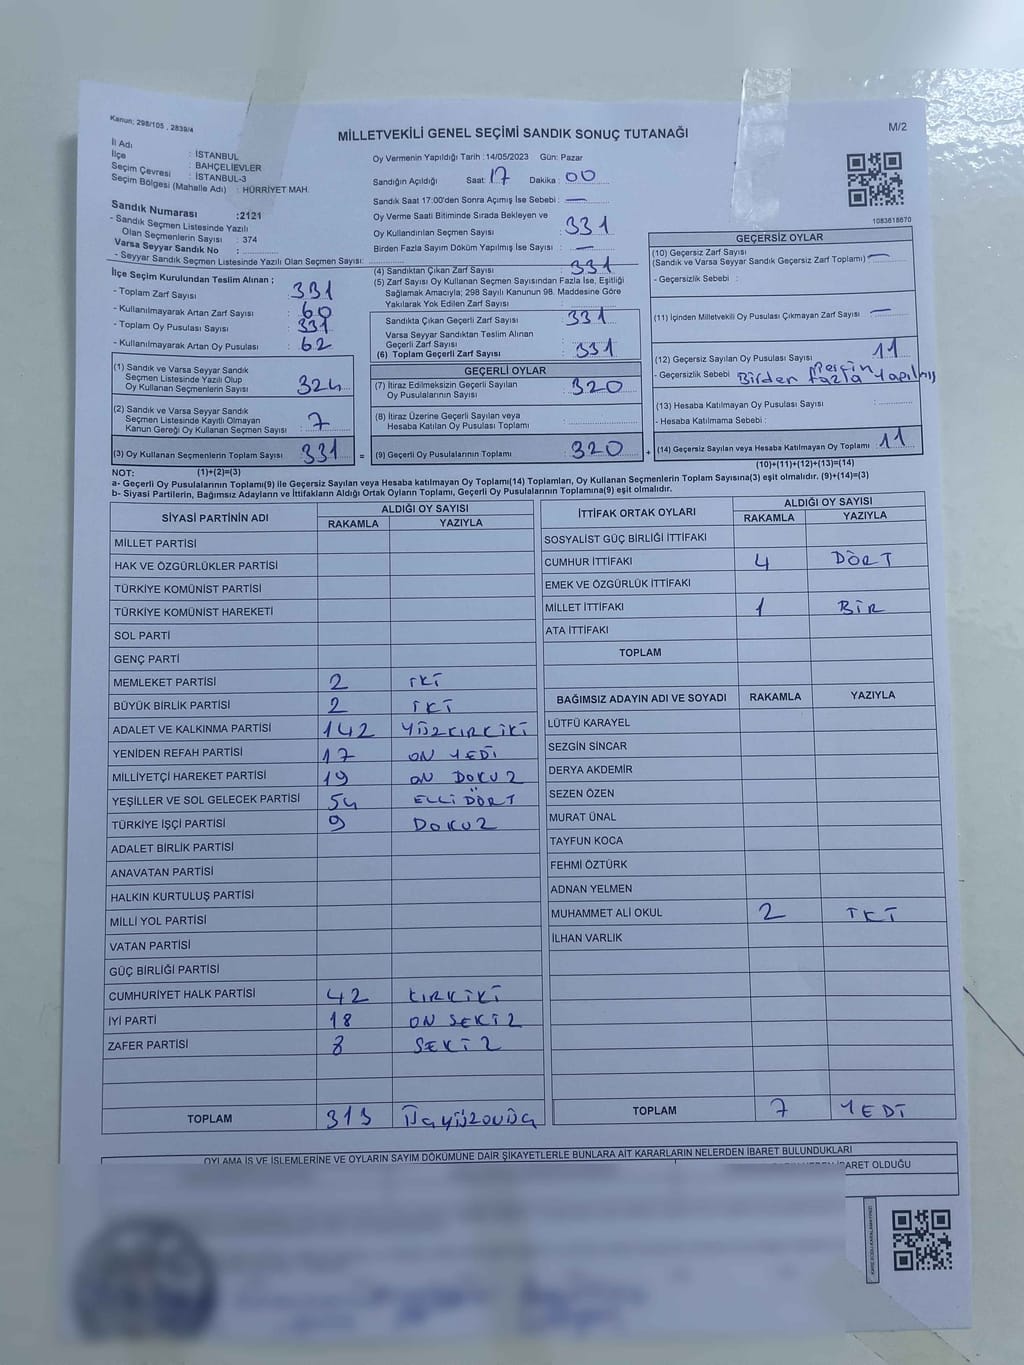 Kanun; 298/105 , 2839/4
M/2
MİLLETVEKİLİ GENEL SEÇİMİ SANDIK SONUÇ TUTANAĞI
İl Adı : İSTANBUL
İlçe : BAHÇELİEVLER
Seçim Çevresi : İSTANBUL-3
Seçim Bölgesi (Mahalle Adı) : HÜRRİYET MAH.
Sandık Numarası :2121
- Sandık Seçmen Listesinde Yazılı
Olan Seçmenlerin Sayısı : 374
Varsa Seyyar Sandık No :
- Seyyar Sandık Seçmen Listesinde Yazılı Olan Seçmen Sayısı:
Oy Vermenin Yapıldığı Tarih :14/05/2023 Gün: Pazar
Sandığın Açıldığı Saat: 17 Dakika : 00
Sandık Saat 17:00'den Sonra Açımış İse Sebebi : —
Oy Verme Saati Bitiminde Sırada Bekleyen ve
Oy Kullandırılan Seçmen Sayısı : 331
Birden Fazla Sayım Döküm Yapılmış İse Sayısı : —
1083618670
İlçe Seçim Kurulundan Teslim Alınan ;
- Toplam Zarf Sayısı : 331
- Kullanılmayarak Artan Zarf Sayısı : 60
- Toplam Oy Pusulası Sayısı : 331
- Kullanılmayarak Artan Oy Pusulası : 62
(1) Sandık ve Varsa Seyyar Sandık
Seçmen Listesinde Yazılı Olup
Oy Kullanan Seçmenlerin Sayısı : 324
(2) Sandık ve Varsa Seyyar Sandık
Seçmen Listesinde Kayıtlı Olmayan
Kanun Gereği Oy Kullanan Seçmen Sayısı : 7
(3) Oy Kullanan Seçmenlerin Toplam Sayısı : 331 =
(4) Sandıktan Çıkan Zarf Sayısı : 331
(5) Zarf Sayısı Oy Kullanan Seçmen Sayısından Fazla İse, Eşitliği
Sağlamak Amacıyla; 298 Sayılı Kanunun 98. Maddesine Göre
Yakılarak Yok Edilen Zarf Sayısı :
Sandıkta Çıkan Geçerli Zarf Sayısı : 331
Varsa Seyyar Sandıktan Teslim Alınan
Geçerli Zarf Sayısı
(6) Toplam Geçerli Zarf Sayısı : 331
GEÇERLİ OYLAR
(7) İtiraz Edilmeksizin Geçerli Sayılan
Oy Pusulalarının Sayısı : 320
(8) İtiraz Üzerine Geçerli Sayılan veya
Hesaba Katılan Oy Pusulası Toplamı :
(9) Geçerli Oy Pusulalarının Toplamı : 320 +
GEÇERSİZ OYLAR
(10) Geçersiz Zarf Sayısı
(Sandık ve Varsa Seyyar Sandık Geçersiz Zarf Toplamı) : —
- Geçersizlik Sebebi :
(11) İçinden Milletvekili Oy Pusulası Çıkmayan Zarf Sayısı : —
(12) Geçersiz Sayılan Oy Pusulası Sayısı : 11
- Geçersizlik Sebebi : Birden fazla yapılmış
(13) Hesaba Katılmayan Oy Pusulası Sayısı :
- Hesaba Katılmama Sebebi :
(14) Geçersiz Sayılan veya Hesaba Katılmayan Oy Toplamı : 11
NOT: (1)+(2)=(3)
(10)+(11)+(12)+(13)=(14)
a- Geçerli Oy Pusulalarının Toplamı(9) ile Geçersiz Sayılan veya Hesaba Katılmayan Oy Toplamı(14) Toplamları, Oy Kullanan Seçmenlerin Toplam Sayısına(3) eşit olmalıdır. (9)+(14)=(3)
b- Siyasi Partilerin, Bağımsız Adayların ve İttifakların Aldığı Ortak Oyların Toplamı, Geçerli Oy Pusulalarının Toplamına(9) eşit olmalıdır.
SİYASİ PARTİNİN ADI ALDIĞI OY SAYISI
RAKAMLA YAZIYLA
MİLLET PARTİSİ
HAK VE ÖZGÜRLÜKLER PARTİSİ
TÜRKİYE KOMÜNİST PARTİSİ
TÜRKİYE KOMÜNİST HAREKETİ
SOL PARTİ
GENÇ PARTİ
MEMLEKET PARTİSİ 2 İKİ
BÜYÜK BİRLİK PARTİSİ 2 İKİ
ADALET VE KALKINMA PARTİSİ 142 YÜZKIRKİKİ
YENİDEN REFAH PARTİSİ 17 ON YEDİ
MİLLİYETÇİ HAREKET PARTİSİ 19 ON DOKUZ
YEŞİLLER VE SOL GELECEK PARTİSİ 54 ELLİ DÖRT
TÜRKİYE İŞÇİ PARTİSİ 9 DOKUZ
ADALET BİRLİK PARTİSİ
ANAVATAN PARTİSİ
HALKIN KURTULUŞ PARTİSİ
MİLLİ YOL PARTİSİ
VATAN PARTİSİ
GÜÇ BİRLİĞİ PARTİSİ
CUMHURİYET HALK PARTİSİ 42 KIRKİKİ
İYİ PARTİ 18 ON SEKİZ
ZAFER PARTİSİ 8 SEKİZ
TOPLAM 313 ÜçYÜZONÜç
İTTİFAK ORTAK OYLARI ALDIĞI OY SAYISI
RAKAMLA YAZIYLA
SOSYALİST GÜÇ BİRLİĞİ İTTİFAKI
CUMHUR İTTİFAKI 4 DÖRT
EMEK VE ÖZGÜRLÜK İTTİFAKI
MİLLET İTTİFAKI 1 BİR
ATA İTTİFAKI
TOPLAM
BAĞIMSIZ ADAYIN ADI VE SOYADI RAKAMLA YAZIYLA
LÜTFÜ KARAYEL
SEZGİN SİNCAR
DERYA AKDEMİR
SEZEN ÖZEN
MURAT ÜNAL
TAYFUN KOCA
FEHMİ ÖZTÜRK
ADNAN YELMEN
MUHAMMET ALİ OKUL 2 İKİ
İLHAN VARLIK
TOPLAM 7 YEDİ
OYLAMA İŞ VE İŞLEMLERİNE VE OYLARIN SAYIM DÖKÜMÜNE DAİR ŞİKAYETLERLE BUNLARA AİT KARARLARIN NELERDEN İBARET BULUNDUKLARI
İBARET OLDUĞU